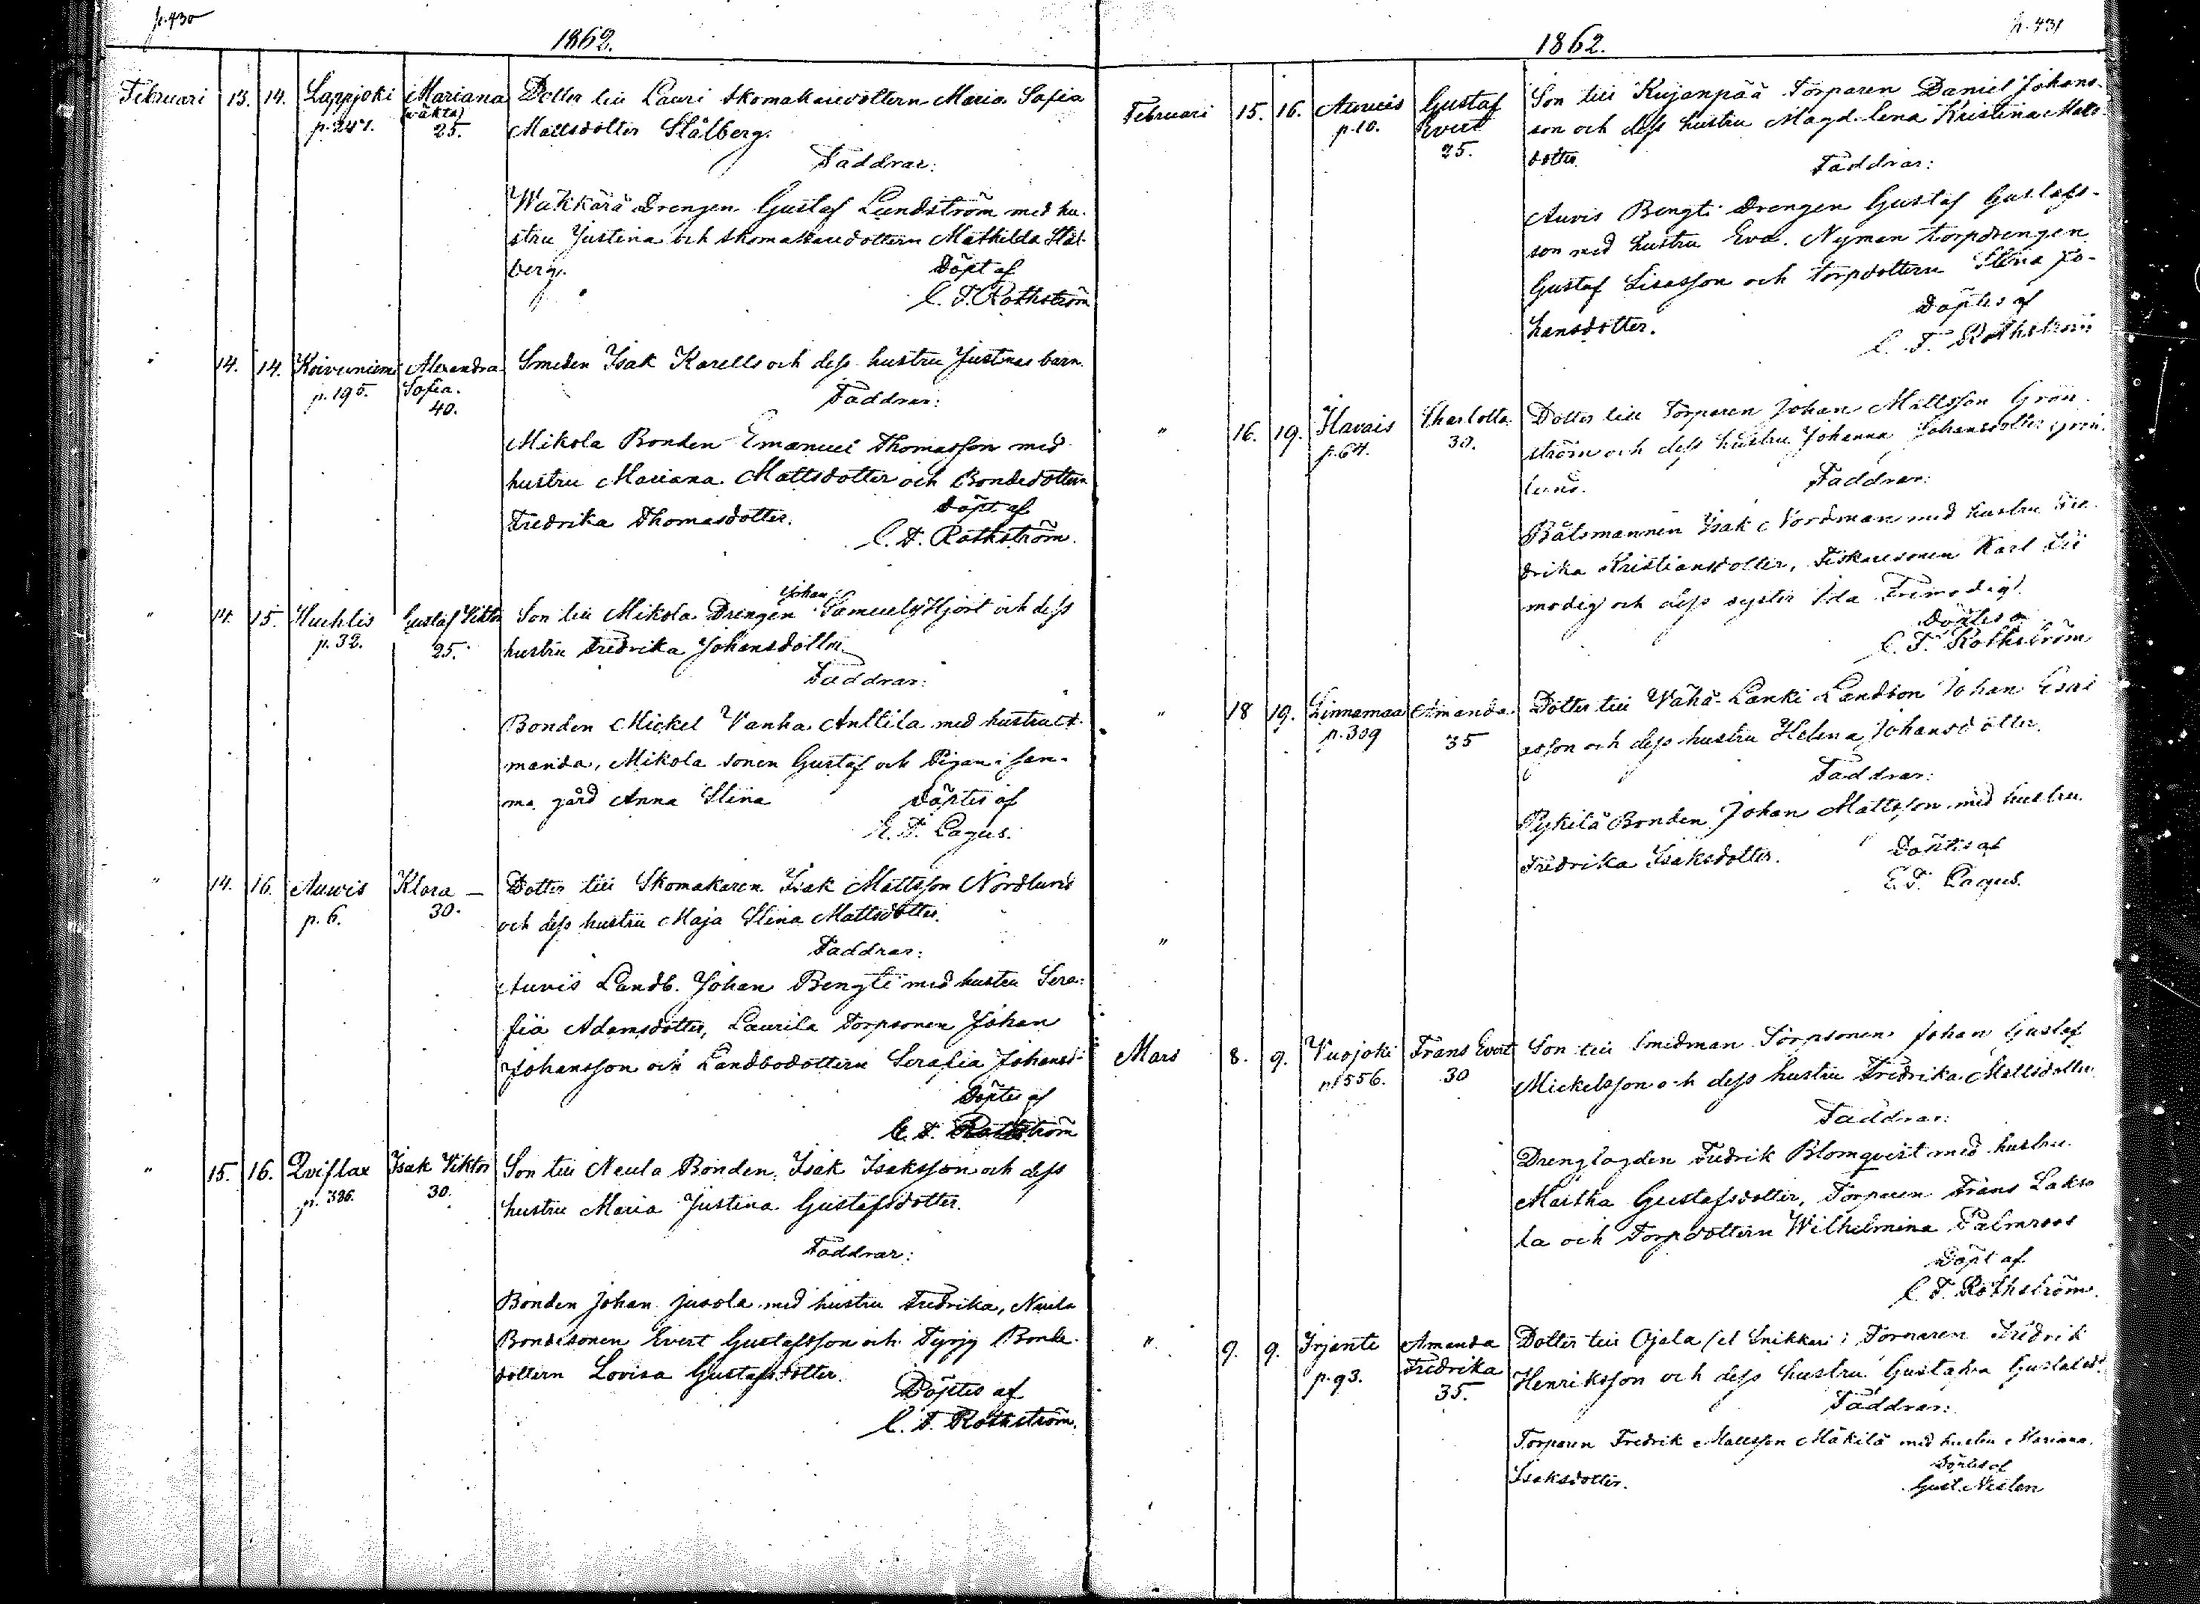 p. 430
1862.
Februari 13. 14. Lappjoki Mariana Dotter till Lauri skomakaredottern Maria Sofia
p. 247. (oäkta) Mattsdotter Stålberg.
25.
Faddrar:
Wäkkärä Drengen Gustaf Lundström med hu-
stru Justina och skomakaredottern Mathilda Stål-
berg. Döpt af
C. F. Rothström
" 14. 14. Koivuniemi Alexandra Smeden Isak Karells och dess hustru Justinas barn.
p. 195. Sofia. Faddrar:
40.
Mikola Bonden Emanuel Thomasson med
hustru Mariana Mattsdotter och Bondedottern
Fredrika Thomasdotter. Döpt af
C. F. Rothström.
" 14. 15. Huchlis Gustaf Viktor Son till Mikola Drengen Johan Samuel Hjort och dess
p. 32. 25. hustru Fredrika Johansdotter.
Faddrar:
Bonden Mickel Vanha Anttila med hustru A-
manda, Mikola sonen Gustaf och Pigan i sam-
ma gård Anna Stina Döptes af
E. F. Lagus.
" 14. 16. Auvis Klara — Dotter till Skomakaren Isak Mattsson Nordlund
p. 6. 30. och dess hustru Maja Stina Mattsdotter.
Faddrar:
Auvis Landb. Johan Bengti med hustru Sera-
fia Adamsdotter, Laurila Torpsonen Johan
Johansson och Landbodottern Serafia Johansd:
Döptes af
C. F. Rothström
" 15. 16. Qviflax Isak Viktor Son till Neula Bonden Isak Isaksson och dess
p. 336. 30. hustru Maria Justina Gustafsdotter.
Faddrar:
Bonden Johan Jusola med hustru Fredrika, Neula
Bondesonen Evert Gustafsson och Tyrjy Bonde-
dottern Lovisa Gustafsdotter.
Döptes af
C. F. Rothström.
p. 431
1862.
Februari 15. 16. Auvis Gustaf Son till Kujanpää Torparen Daniel Johans-
p. 10. Evert son och dess hustru Magdalena Kristina Matts-
25. dotter. Faddrar:
Auvis Bengti Drengen Gustaf Gustafs-
son med hustru Eva. Nyman torpdrengen
Gustaf Lisasson och torpdottern Stina Jo-
hansdotter. Döptes af
C. F. Rothström
" 16. 19. Havais Charlotta Dotter till Torparen Johan Mattsson Grön-
p. 64. 30. ström och dess hustru Johanna Johansdotter Grön-
lund. Faddrar:
Båtsmannen Isak Nordman med hustru Fre-
drika Kristiansdotter, Fiskaresonen Karl Fri
modig och dess syster Ida Frimodig.
Döptes af
C. F. Rothström
" 18 19. Linnamaa Amanda Dotter till Wähä-Lanki Landbon Johan Esai
p. 309 35 asson och dess hustru Helena Johansdotter.
Faddrar:
Pykilä Bonden Johan Mattsson med hustru
Fredrika Isaksdotter. Döptes af
E. F. Lagus.
"
Mars 8. 9. Vuojoki Frans Evert Son till Smedman Torpsonen Johan Gustaf
p. 556. 30 Mickelsson och dess hustru Fredrika Mattsdotter.
Faddrar:
Drenglogden Fredrik Blomqvist med hustru
Martha Gustafsdotter, Torparen Frans Lakso
la och Torpdottern Wilhelmina Palmroos
Döpt af
C. F. Rothström.
" 9. 9. Irjante Amanda Dotter till Ojala (el Snikkari) Torparen Fredrik
p. 93. Fredrika Henriksson och dess hustru Gustafva Gustafsd:
35. Faddrar:
Torparen Fredrik Mattsson Mäkilä med hustru Mariana
Isaksdotter. Döptes af
Gust. Neslen